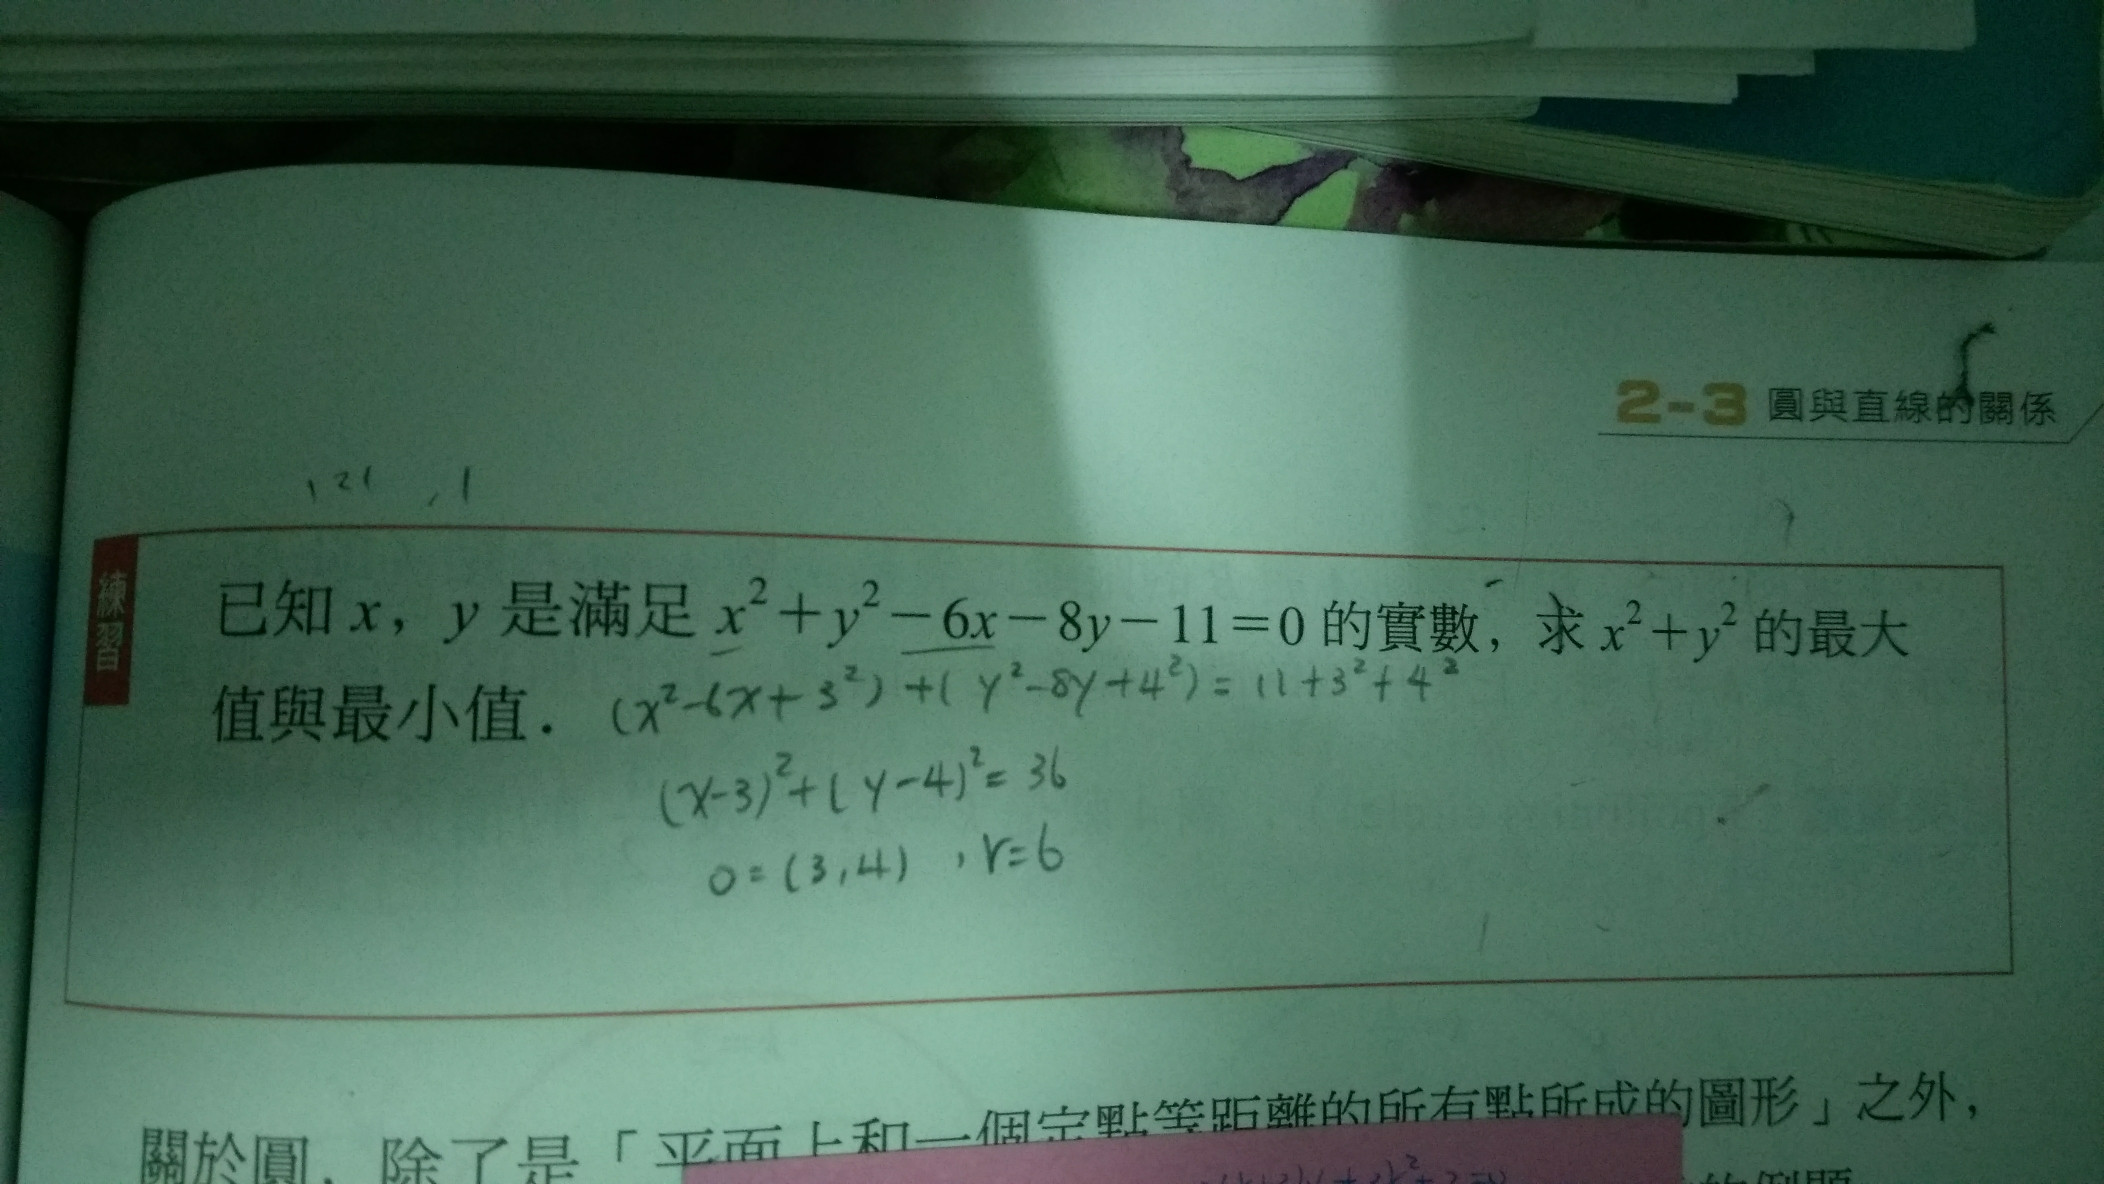 2-3 圓與直線的關係
, 121 , 1
練習
已知 x，y 是滿足 x²+y²-6x-8y-11=0 的實數，求 x²+y² 的最大
值與最小值．
(x²-6x+3²)+(y²-8y+4²)=11+3²+4²
(x-3)²+(y-4)²=36
O=(3,4) , r=6
關於圓，除了是「平面上和一個定點等距離的所有點所成的圖形」之外，
的例題